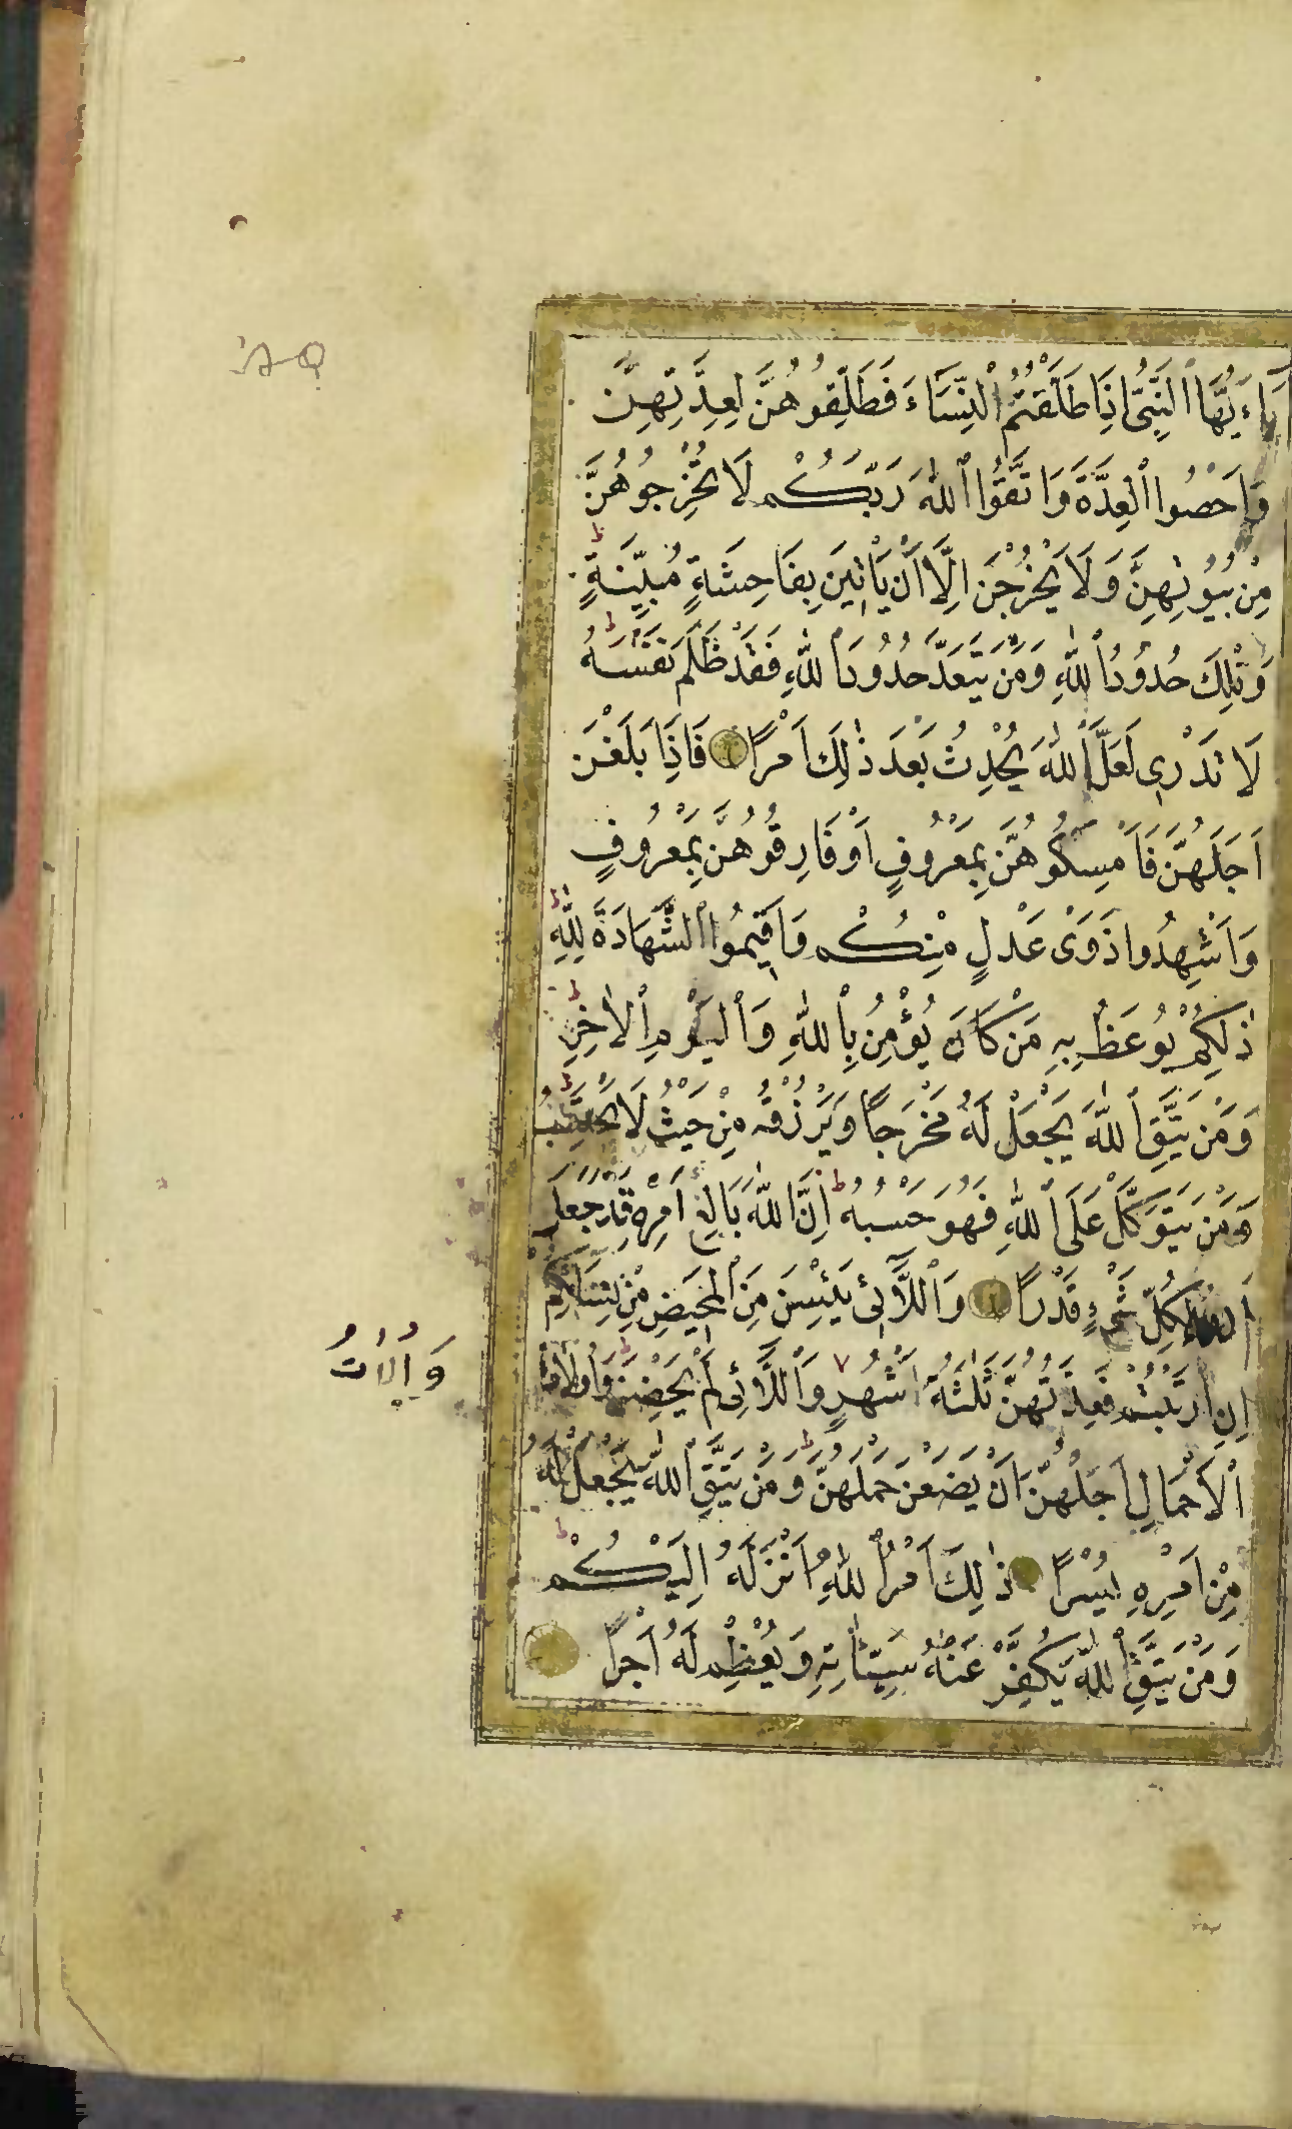 يَاءَيُّهَا ٱلنَّبِىُّ اِذَا طَلَّقْتُمُ ٱلنِّسَآءَ فَطَلِّقُوهُنَّ لِعِدَّتِهِنَّ
وَاَحْصُوا ٱلْعِدَّةَ وَاتَّقُوا ٱللّٰهَ رَبَّكُمْ لَا تُخْرِجُوهُنَّ
مِنْ بُيُوتِهِنَّ وَلَا يَخْرُجْنَ اِلَّا اَنْ يَاْتِينَ بِفَاحِشَةٍ مُبَيِّنَةٍ ط
وَتِلْكَ حُدُودُ ٱللّٰهِ وَمَنْ يَتَعَدَّ حُدُودَ ٱللّٰهِ فَقَدْ ظَلَمَ نَفْسَهُ ط
لَا تَدْرِى لَعَلَّ ٱللّٰهَ يُحْدِثُ بَعْدَ ذٰلِكَ اَمْرًا فَاِذَا بَلَغْنَ
اَجَلَهُنَّ فَاَمْسِكُوهُنَّ بِمَعْرُوفٍ اَوْ فَارِقُوهُنَّ بِمَعْرُوفٍ
وَاَشْهِدُوا ذَوَىْ عَدْلٍ مِنْكُمْ وَاَقِيمُوا ٱلشَّهَادَةَ لِلّٰهِ ط
ذٰلِكُمْ يُوعَظُ بِهِ مَنْ كَانَ يُؤْمِنُ بِٱللّٰهِ وَٱلْيَوْمِ ٱلْاٰخِرِ ط
وَمَنْ يَتَّقِ ٱللّٰهَ يَجْعَلْ لَهُ مَخْرَجًا وَيَرْزُقْهُ مِنْ حَيْثُ لَا يَحْتَسِبُ ط
وَمَنْ يَتَوَكَّلْ عَلَى ٱللّٰهِ فَهُوَ حَسْبُهُ ط اِنَّ ٱللّٰهَ بَالِغُ اَمْرِهِ قَدْ جَعَلَ
ٱللّٰهُ لِكُلِّ شَىْءٍ قَدْرًا وَٱللَّائِى يَئِسْنَ مِنَ ٱلْمَحِيضِ مِنْ نِسَائِكُمْ
اِنِ ٱرْتَبْتُمْ فَعِدَّتُهُنَّ ثَلٰثَةُ اَشْهُرٍ وَٱللَّائِى لَمْ يَحِضْنَ ط وَاُولَاتُ
ٱلْاَحْمَالِ اَجَلُهُنَّ اَنْ يَضَعْنَ حَمْلَهُنَّ ط وَمَنْ يَتَّقِ ٱللّٰهَ يَجْعَلْ لَهُ
مِنْ اَمْرِهِ يُسْرًا ذٰلِكَ اَمْرُ ٱللّٰهِ اَنْزَلَهُ اِلَيْكُمْ ط
وَمَنْ يَتَّقِ ٱللّٰهَ يُكَفِّرْ عَنْهُ سَيِّئَاتِهِ وَيُعْظِمْ لَهُ اَجْرًا
وَاُولَاتُ